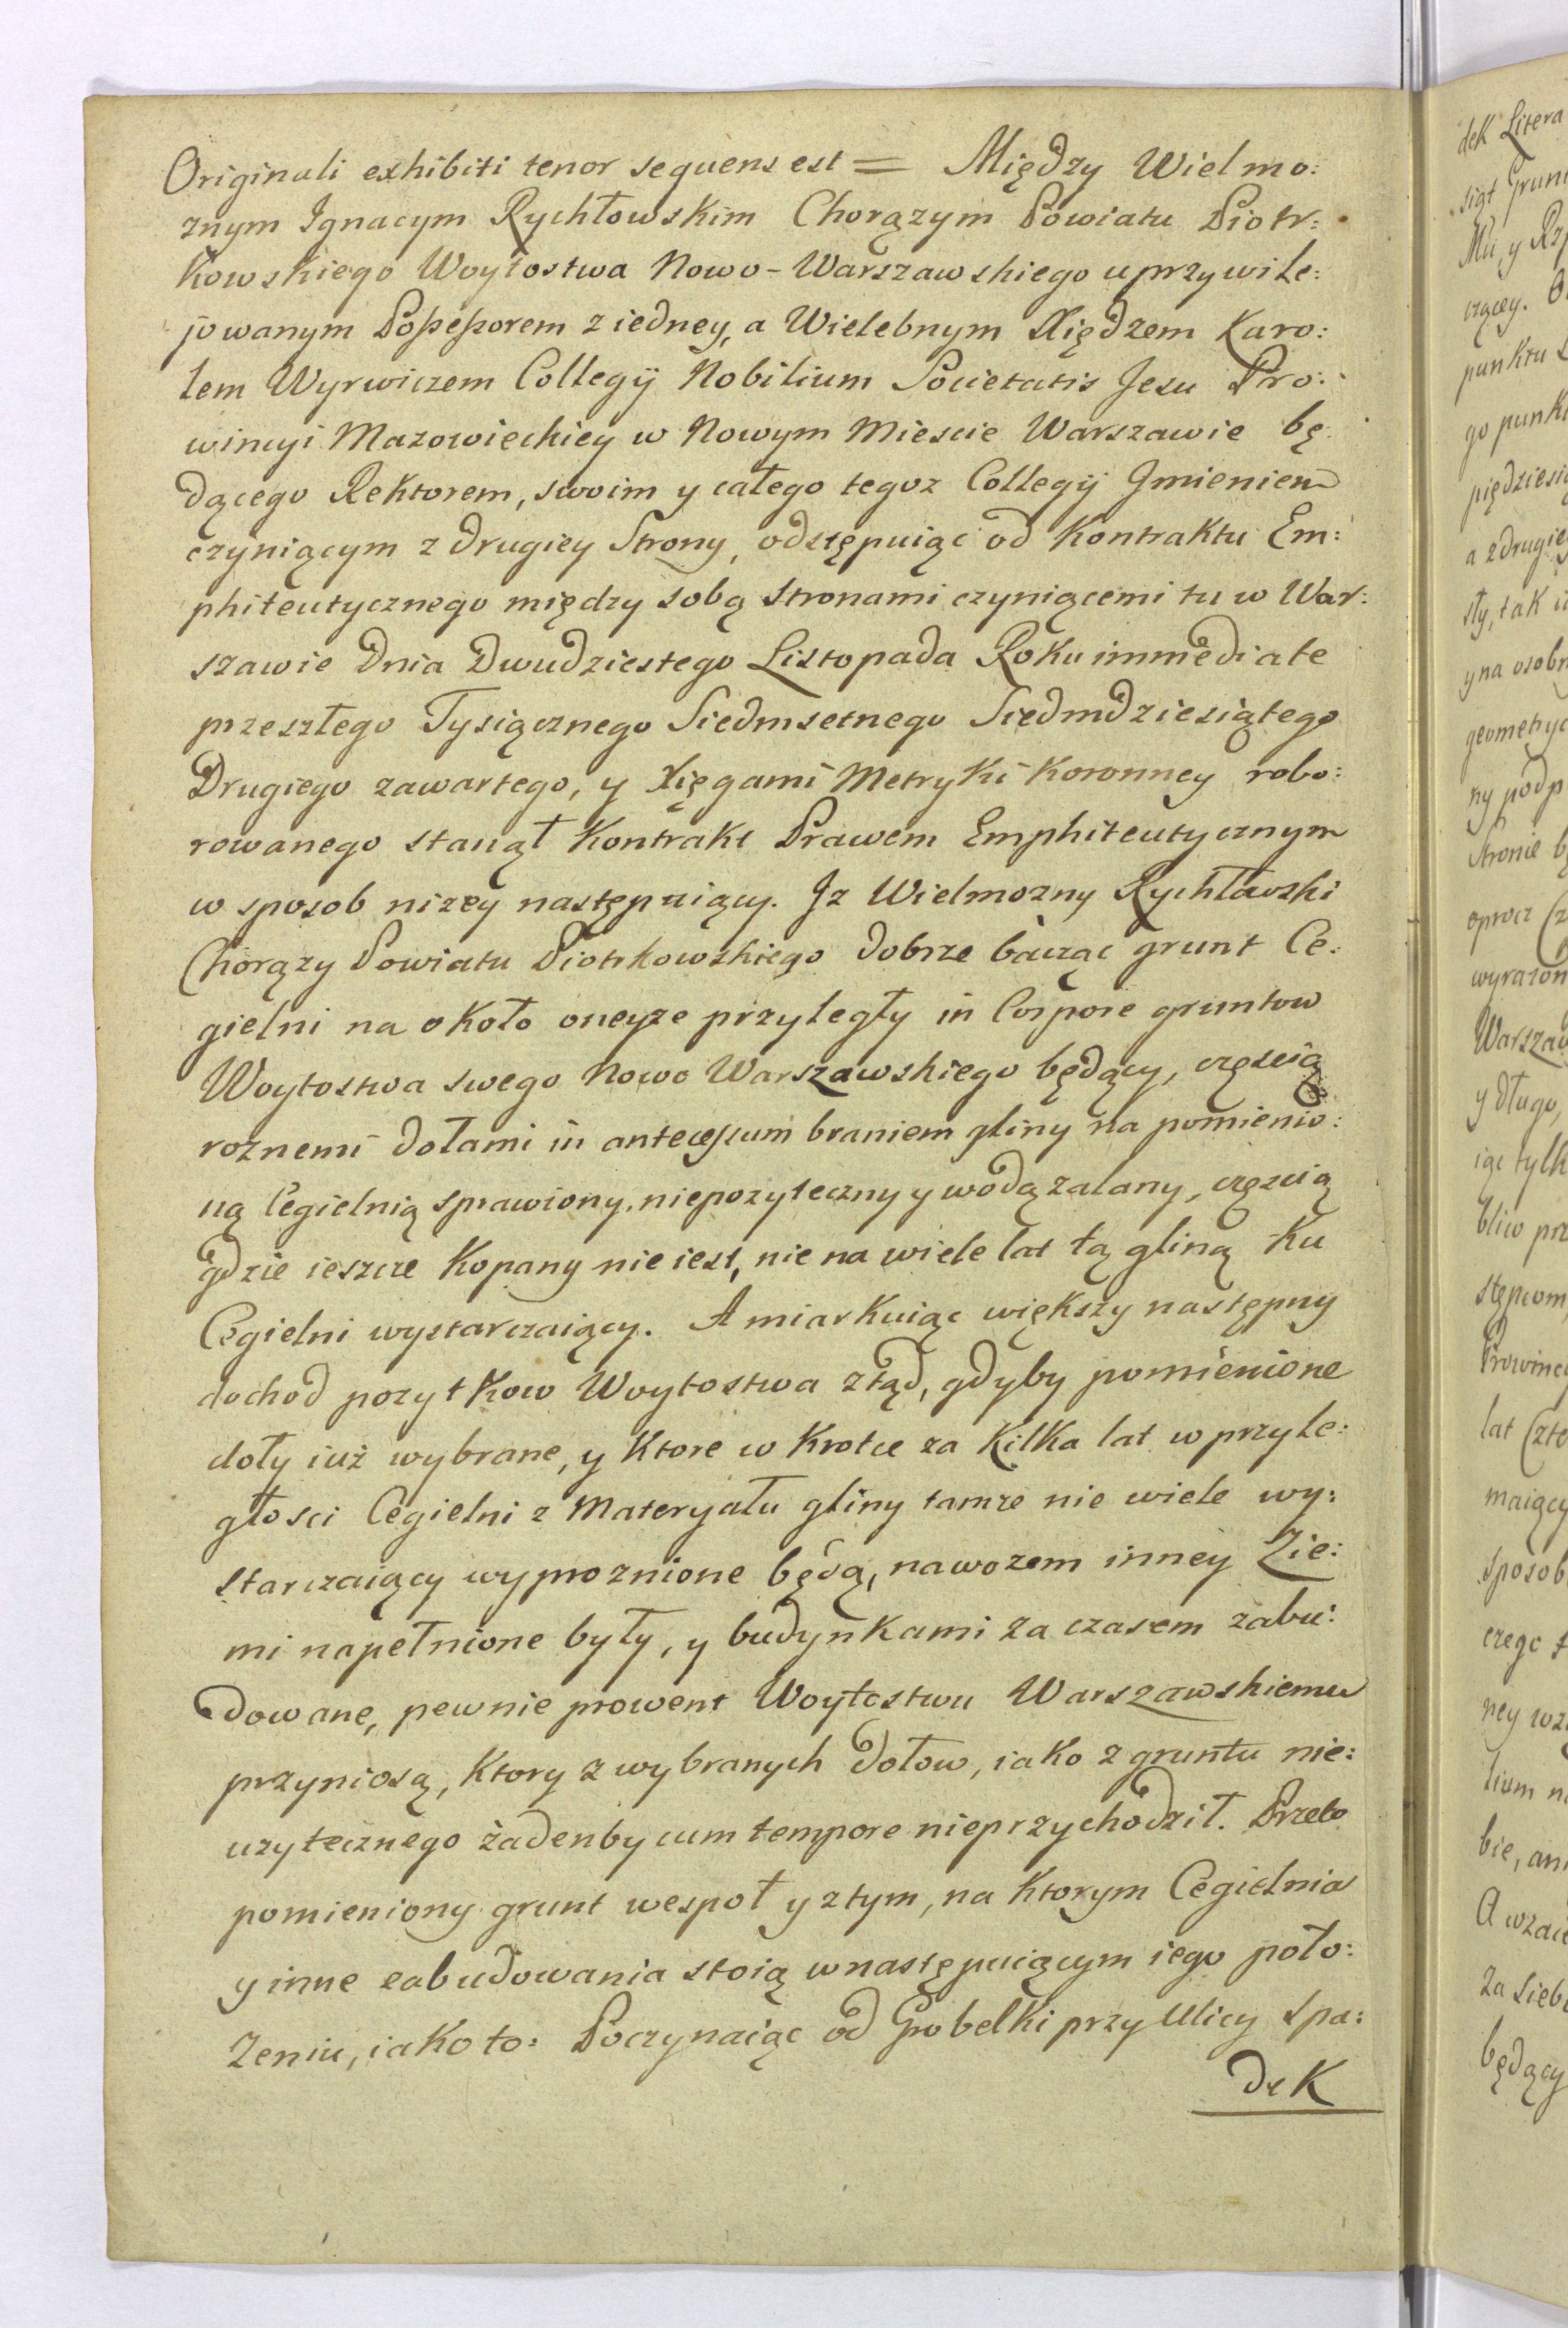 Originali exhibiti tenor sequens est = Między Wielmo:
znym Ignacym Rychłowskim Chorązym Powiatu Piotr:
kowskiego Woytostwa Nowo-Warszawskiego uprzywile:
jowanym Poßeßorem z iedney, a Wielebnym Xiędzem Karo:
lem Wyrwiczem Collegij Nobilium Societatis Jesu Pro:
wincyi Mazowieckiey w Nowym Miescie Warszawie bę:
dącego Rektorem, swoim y całego tegoz Collegij Jmieniem
czyniącym z drugiey Strony, odstępuiąc od Kontraktu Em:
phiteutycznego między sobą stronami czyniącemi tu w War:
szawie Dnia Dwudziestego Listopada Roku immediate
przeszłego Tysiącznego Siedmsetnego Siedmdziesiątego
Drugiego zawartego, y Xięgami Metryki Koronney robo:
rowanego stanął Kontrakt Prawem Emphiteutycznym
w sposob nizey następuiący. Jz Wielmozny Rychławski
Chorązy Powiatu Piotrkowskiego dobrze bacząc grunt Ce:
gielni na około oneyze przyległy in Corpore gruntow
Woytostwa swego Nowo Warszawskiego będący, częscią
roznemi dołami in antecessum braniem gliny na pomienio:
ną Cegielnią sprawiony, niepozyteczny y wodą zalany, częscią
gdzie ieszcze Kopany nie iest, nie na wiele lat tą gliną Ku
Cegielni wystarczaiący. A miarkuiąc większy następny
dochod pozytkow Woytostwa ztąd, gdyby pomienione
doły iuż wybrane, y Ktore w Krotce za Kilka lat w przyle:
głosci Cegielni z Materyału gliny tamze nie wiele wy:
starczaiący wyproznione będą, nawozem inney Zie:
mi napełnione były, y budynkami za czasem zabu:
dowane, pewnie prowent Woytostwu Warszawskiemu
przyniosą, Ktory z wybranych dołow, iako z gruntu nie:
uzytecznego żadenby cum tempore nieprzychodził. Przeto
pomieniony grunt wespoł y z tym, na Ktorym Cegielnia
y inne zabudowania stoią w następuiącym iego poło:
zeniu, iako to: Poczynaiąc od Grobelki przy Ulicy Spa:
dek